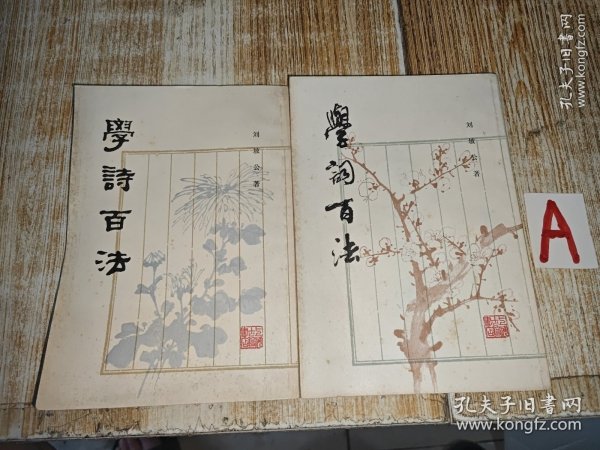 學詩百法
刘坡公著
學詞百法
刘坡公著
A
孔夫子旧書网
www.kongfz.com
孔夫子旧書网
www.kongfz.com